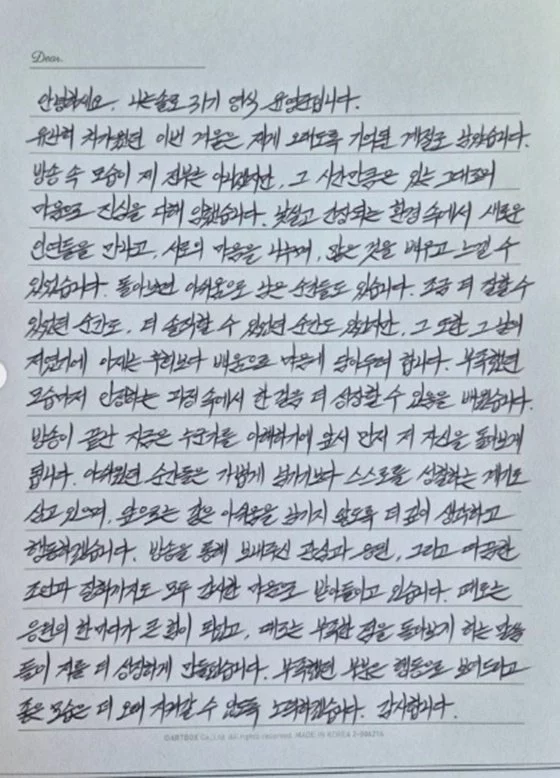 Dear.
안녕하세요. 나는솔로 31기 영식 윤영준입니다.
유난히 차가웠던 이번 겨울은 제게 오래도록 기억될 계절로 남았습니다.
방송 속 모습이 제 전부는 아니겠지만, 그 시간만큼은 있는 그대로의
마음으로 진심을 다해 임했습니다. 낯설고 긴장되는 환경 속에서 새로운
인연들을 만나고, 서로의 마음을 나누며, 많은 것을 배우고 느낄 수
있었습니다. 돌아보면 아쉬움으로 남은 순간들도 있습니다. 조금 더 잘할 수
있었던 순간도, 더 솔직할 수 있었던 순간도 있었지만, 그 또한 그 날의
저였기에 이제는 후회보다 배움으로 마음에 담아두려 합니다. 부족했던
모습마저 인정하는 과정 속에서 한 걸음 더 성장할 수 있음을 배웠습니다.
방송이 끝난 지금은 누군가를 이해하기에 앞서 먼저 저 자신을 돌아보게
됩니다. 아쉬웠던 순간들은 가볍게 넘기기보다 스스로를 성찰하는 계기로
삼고 있으며, 앞으로는 같은 아쉬움을 남기지 않도록 더 깊이 생각하고
행동하겠습니다. 방송을 통해 보내주신 관심과 응원, 그리고 따끔한
조언과 질책까지도 모두 감사한 마음으로 받아들이고 있습니다. 때로는
응원의 한마디가 큰 힘이 되었고, 때로는 부족한 점을 돌아보게 하는 말씀
들이 저를 더 성장하게 만들었습니다. 부족했던 부분은 행동으로 보여드리고
좋은 모습은 더 오래 지켜갈 수 있도록 노력하겠습니다. 감사합니다.
©ARTBOX Co.,Ltd. All rights reserved. MADE IN KOREA